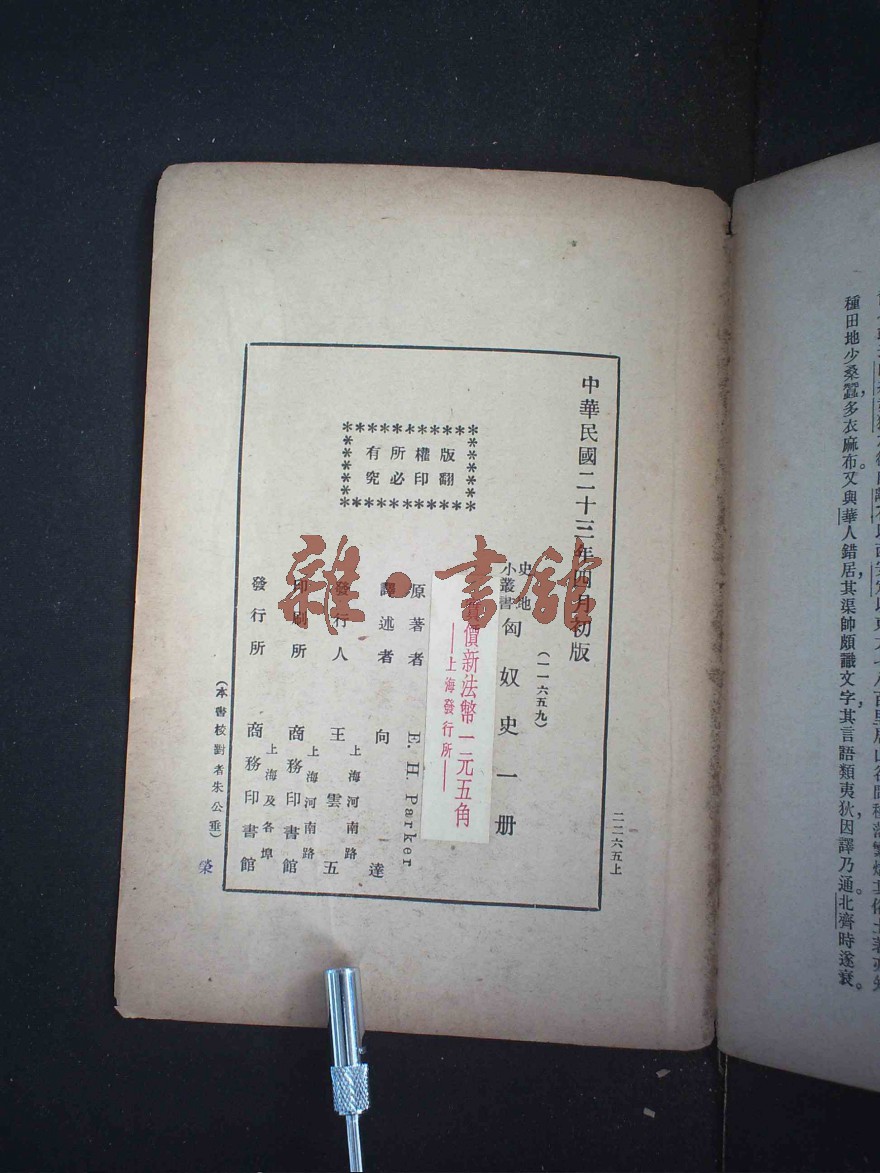 中華民國二十三年四月初版
二二六五上
(一一六五九)
史地
小叢書
匈奴史一册
價新法幣一元五角
—上海發行所—
原著者 E. H. Parker
譯述者 向達
發行人 王雲五
上海河南路
印刷所 商務印書館
上海河南路
發行所 商務印書館
上海及各埠
版權所有
翻印必究
(本書校對者朱公垂)
榮
雜·書館
種田地少桑蠶多衣麻布。又與華人錯居其渠帥頗識文字其言語類夷狄因譯乃通北齊時遂衰。